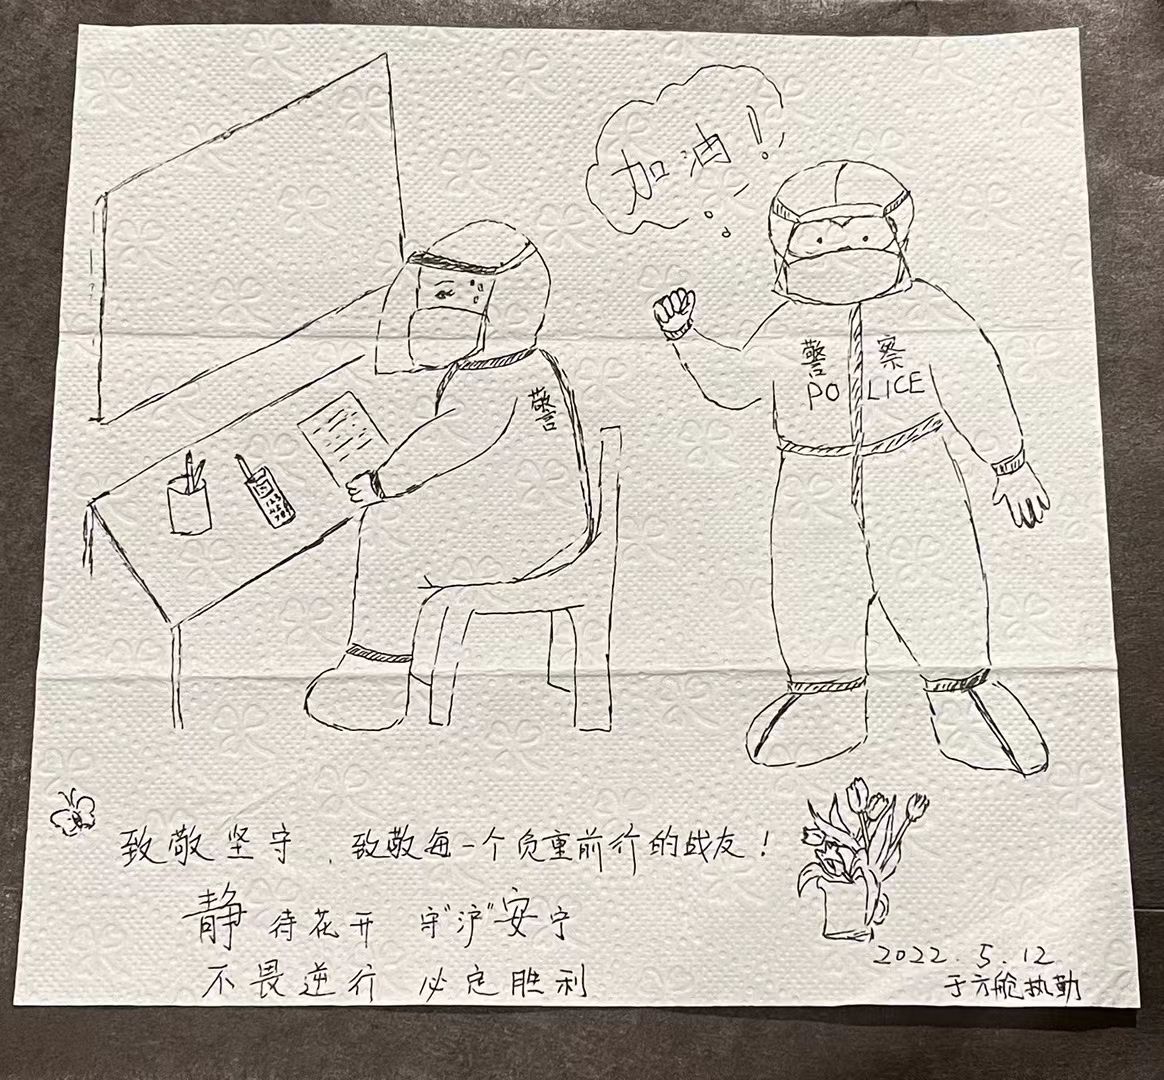 加油！
警
警察
POLICE
致敬坚守，致敬每一个负重前行的战友！
静待花开 守“沪”安宁
不畏逆行 必定胜利
2022.5.12
于方舱执勤